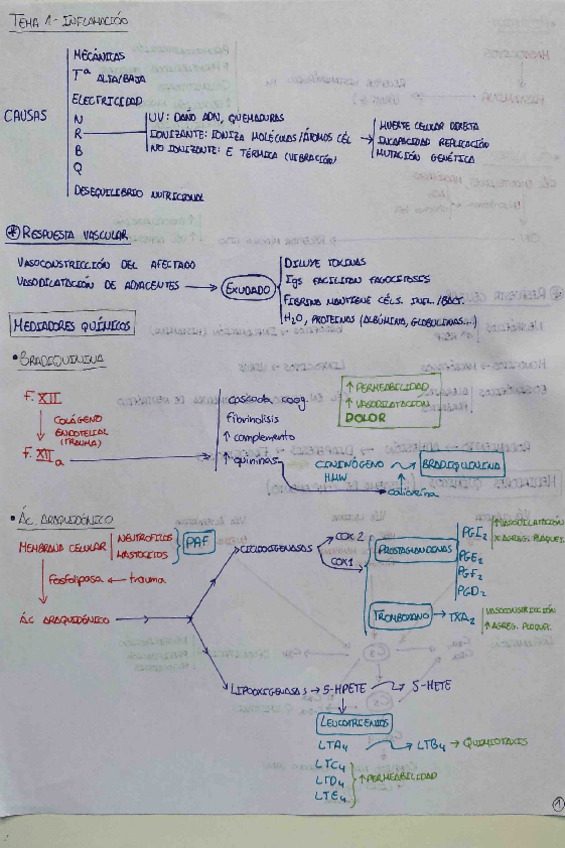 TEMA 1 - INFLAMACIÓN
CAUSAS
MECÁNICAS
Tª ALTA/BAJA
ELECTRICIDAD
N
R
B
Q
DESEQUILIBRIO NUTRICIONAL
UV: DAÑO ADN, QUEMADURAS
IONIZANTE: IONIZA MOLÉCULAS/ÁTOMOS CÉL
NO IONIZANTE: E TÉRMICA (VIBRACIÓN
MUERTE CELULAR DIRECTA
INCAPACIDAD REPLICACIÓN
MUTACIÓN GENÉTICA
RESPUESTA VASCULAR
VASOCONSTRICCIÓN DEL AFECTADO
VASODILATACIÓN DE ADYACENTES → EXUDADO
DILUYE TOXINAS
Igs FACILITAN FAGOCITOSIS
FIBRINA MANTIENE CÉLS. INFL./BACT.
H₂O, PROTEÍNAS (ALBÚMINA, GLOBULINAS...)
MEDIADORES QUÍMICOS
• BRADIQUININA
F. XII
COLÁGENO
ENDOTELIAL
(TRAUMA)
F. XIIa
cascada coag.
Fibrinolisis
↑ complemento
↑ quininas
↑ PERMEABILIDAD
↑ VASODILATACIÓN
DOLOR
CININÓGENO
HMW
BRADIQUININA
calicreína
• ÁC. ARAQUIDÓNICO
MEMBRANA CELULAR
NEUTRÓFILOS
MASTOCITOS
PAF
Fosfolipasa ← trauma
ÁC ARAQUIDÓNICO
CICLOOXIGENASAS
COX 2
COX 1
PROSTAGLANDINAS
PGE₂
PGF₂
PGD₂
↑ VASODILATACIÓN
TROMBOXANO → TXA₂
VASOCONSTRICCIÓN
↑ AGREG. PLAQUET.
LIPOOXIGENASAS → 5-HPETE → 5-HETE
LEUCOTRIENOS
LTA₄ → LTB₄ → QUIMIOTAXIS
LTC₄
LTD₄
LTE₄
↑ PERMEABILIDAD
1